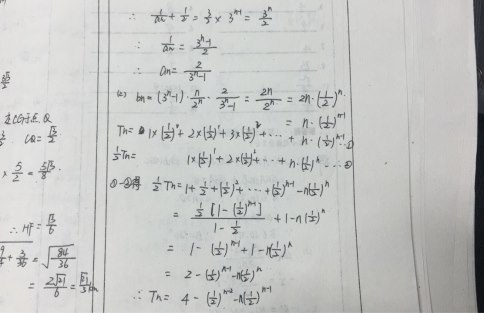 ∴ 1/an + 1/2 = 3/2 × 3^(n-1) = 3^n/2
∴ 1/an = (3^n-1)/2
∴ an = 2/(3^n-1)
(2) bn = (3^n-1)·n/2^n·2/(3^n-1) = 2n/2^n = 2n·(1/2)^n
= n·(1/2)^(n-1)
Tn = 1×(1/2)^0+2×(1/2)^1+3×(1/2)^2+…+n·(1/2)^(n-1)…①
1/2Tn = 1×(1/2)^1+2×(1/2)^2+…+n·(1/2)^n…②
①-②得 1/2Tn = 1+1/2+(1/2)^2+…+(1/2)^(n-1)-n(1/2)^n
= 1/2[1-(1/2)^(n-1)]/(1-1/2)+1-n(1/2)^n
= 1-(1/2)^(n-1)+1-n(1/2)^n
= 2-(1/2)^(n-1)-n(1/2)^n
∴ Tn = 4-(1/2)^(n-2)-n(1/2)^(n-1)
CQ=√3/2
×5/2=5√3/8
∴HF=√3/6
+3/36=√(84/36)
=2√21/6=√21/3